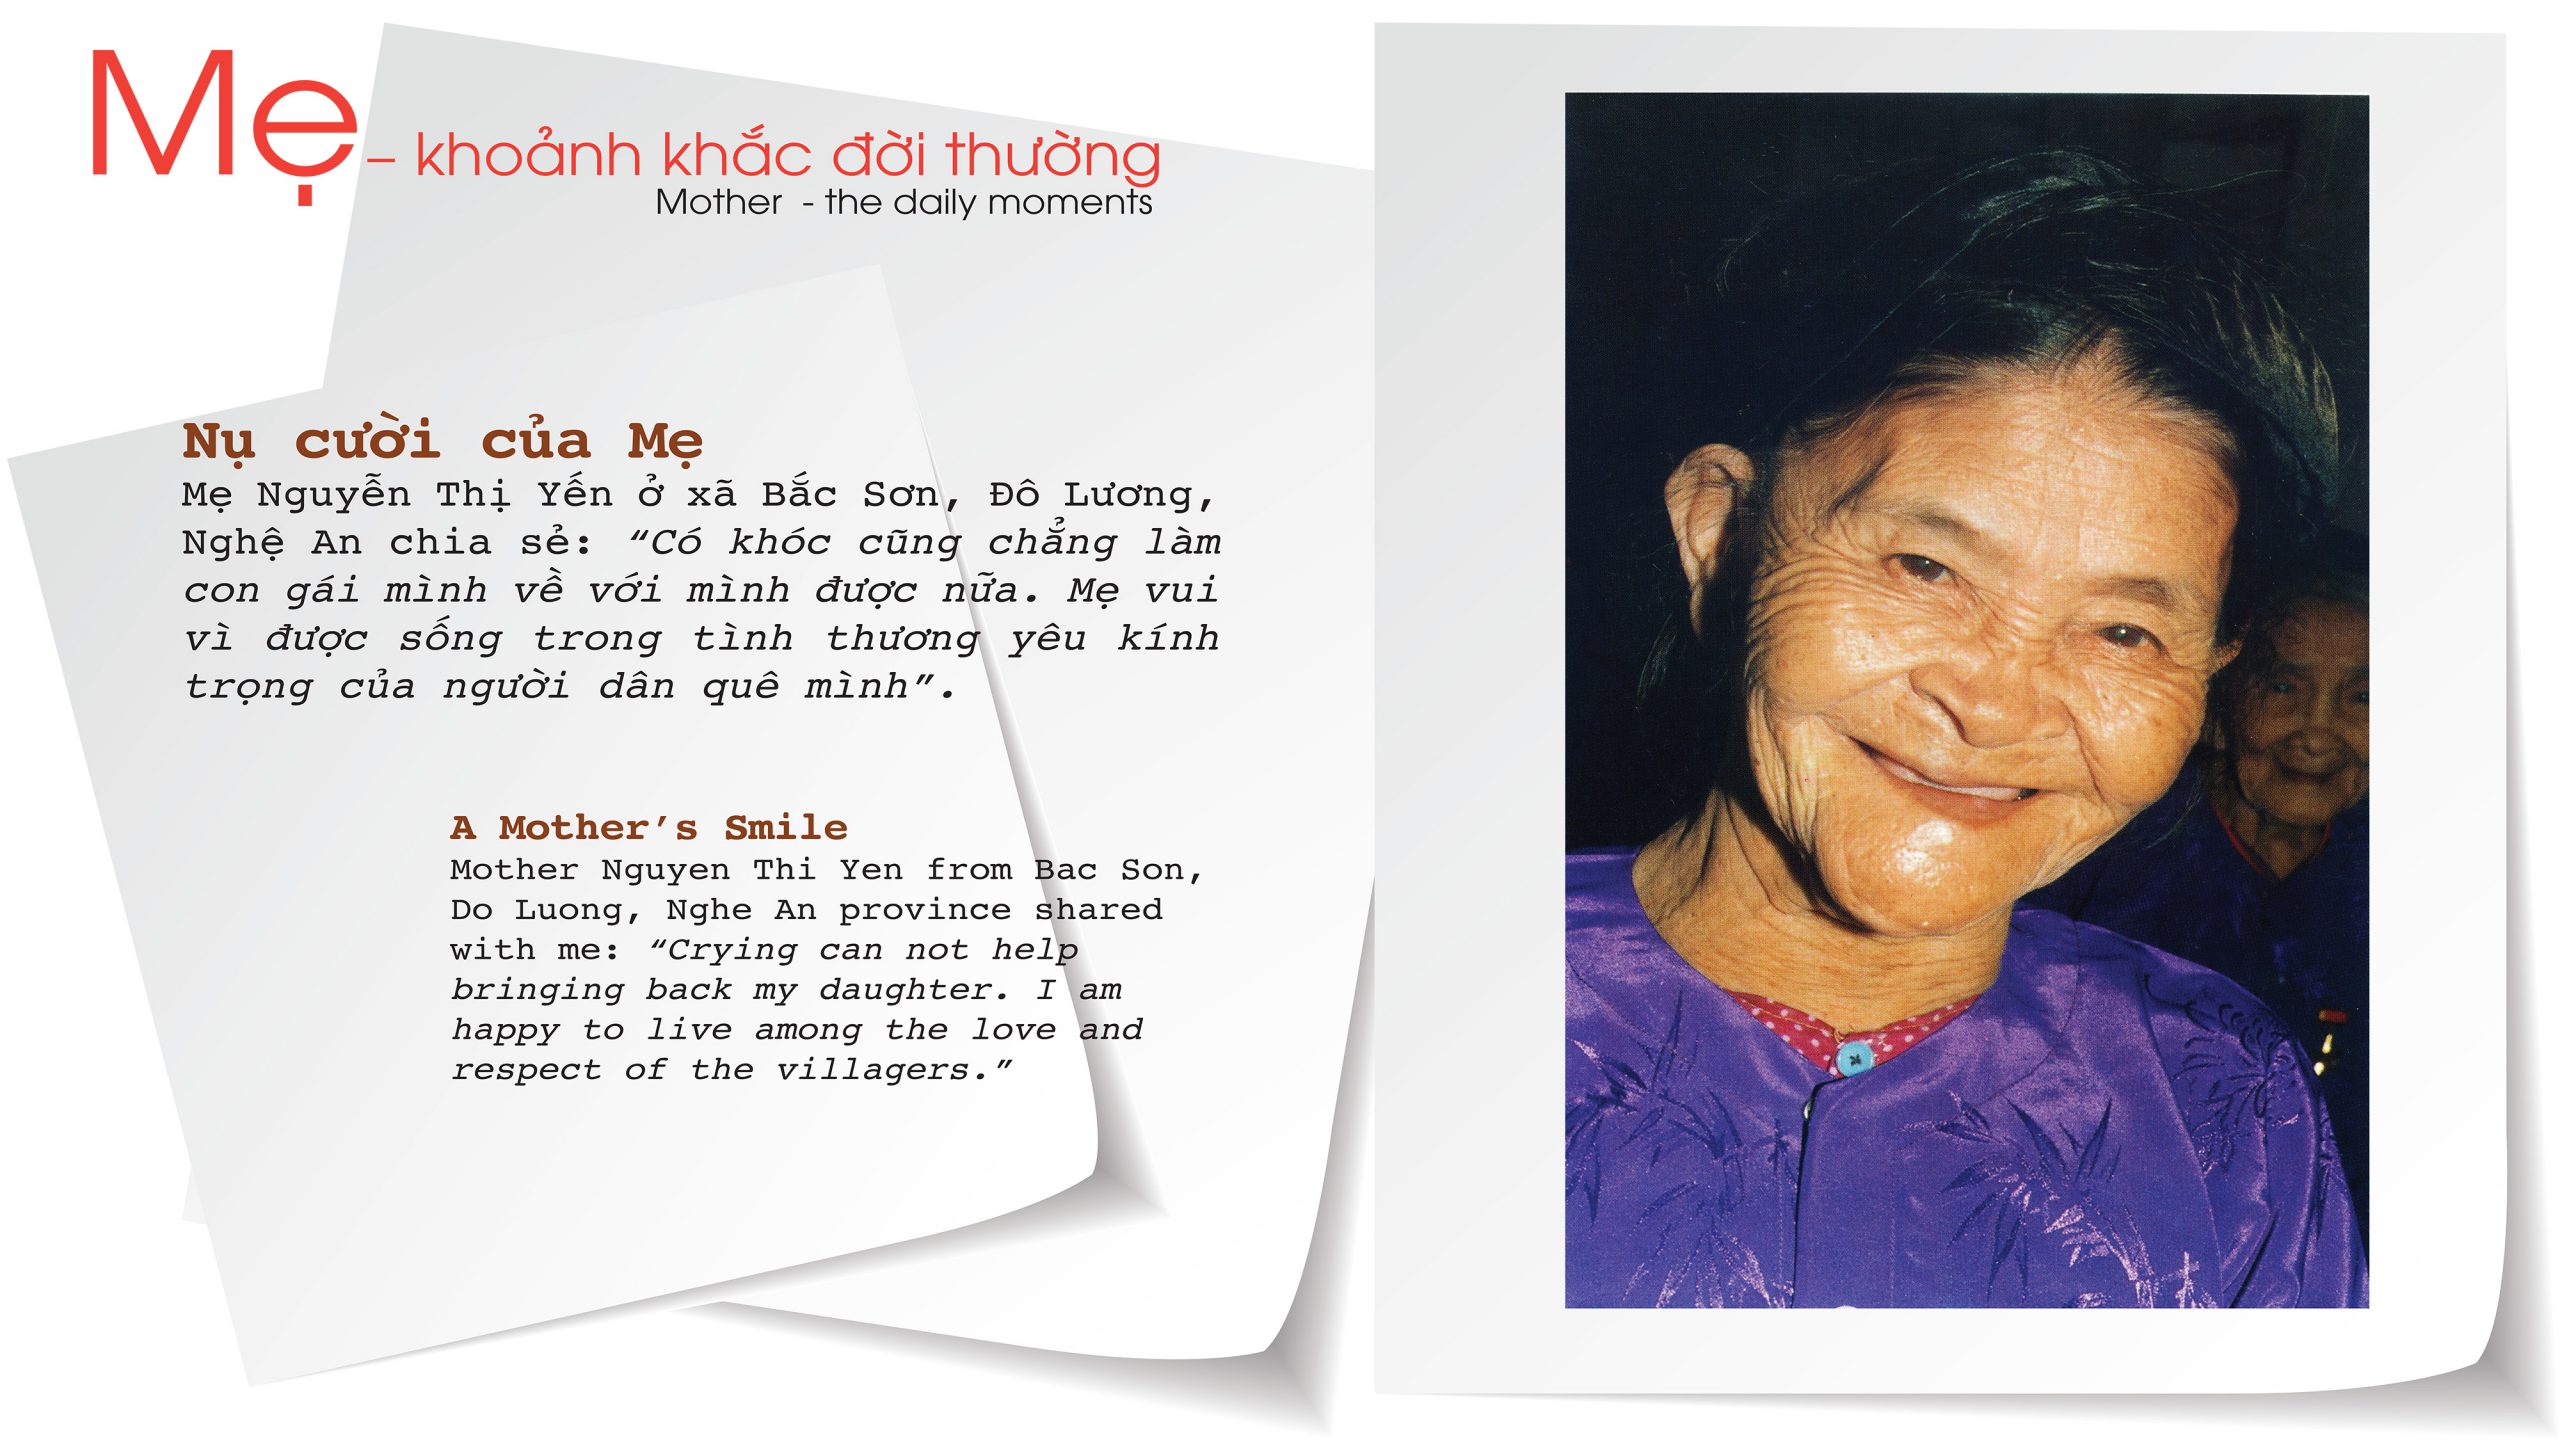 Mẹ – khoảnh khắc đời thường
Mother - the daily moments
Nụ cười của Mẹ
Mẹ Nguyễn Thị Yến ở xã Bắc Sơn, Đô Lương,
Nghệ An chia sẻ: “Có khóc cũng chẳng làm
con gái mình về với mình được nữa. Mẹ vui
vì được sống trong tình thương yêu kính
trọng của người dân quê mình”.
A Mother’s Smile
Mother Nguyen Thi Yen from Bac Son,
Do Luong, Nghe An province shared
with me: “Crying can not help
bringing back my daughter. I am
happy to live among the love and
respect of the villagers.”